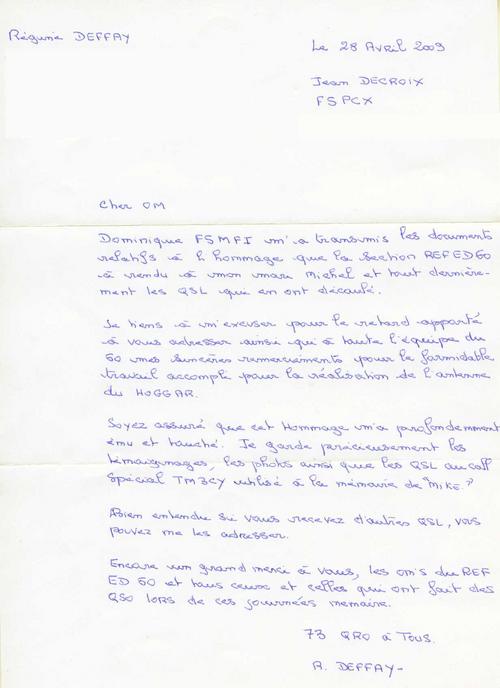 Régine DEFFAY
Le 28 Avril 2009
Jean DECROIX
F5PCX
Cher OM
Dominique F5MFI m'a transmis les documents
relatifs à l'hommage que la section REF ED 60
à rendu à mon mari Michel et tout dernière-
ment les QSL qui en ont découlé.
Je tiens à m'excuser pour le retard apporté
à vous adresser ainsi qu'à toute l'équipe du
60 mes sincères remerciements pour le formidable
travail accompli pour la réalisation de l'antenne
du HOGGAR.
Soyez assuré que cet Hommage m'a profondemment
ému et touché. Je garde précieusement les
témoignages, les photos ainsi que les QSL au call
Spécial TM3CY utilisé à la mémoire de "MIKE."
Bien entendu si vous recevez d'autres QSL, vous
pouvez me les adresser.
Encore un grand merci à vous, les om's du REF
ED 60 et tous ceux et celles qui ont fait des
QSO LORS de ces journées mémoire.
73 QRO à Tous.
R. DEFFAY-